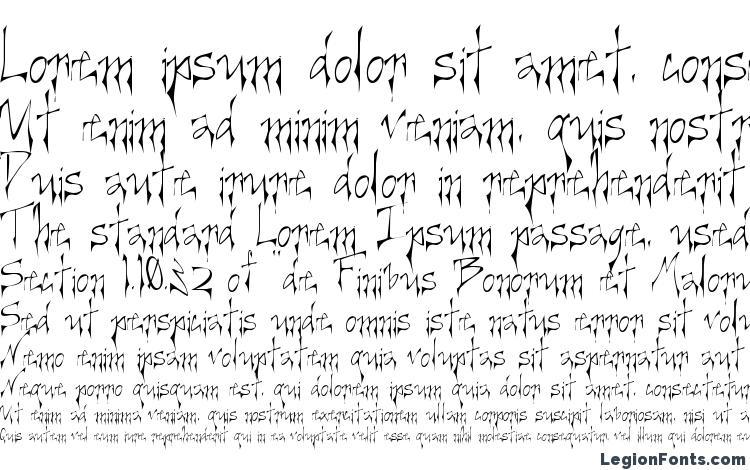 Lorem ipsum dolor sit amet, cons
Ut enim ad minim veniam, quis nostr
Duis aute irure dolor in reprehenderit
The standard Lorem Ipsum passage, used
Section 1.10.32 of "de Finibus Bonorum et Maloru
Sed ut perspiciatis unde omnis iste natus error sit volu
Nemo enim ipsam voluptatem quia voluptas sit aspernatur aut
Neque porro quisquam est, qui dolorem ipsum quia dolor sit amet, consectetur
Ut enim ad minima veniam, quis nostrum exercitationem ullam corporis suscipit laboriosam, nisi ut a
Quis autem vel eum iure reprehenderit qui in ea voluptate velit esse quam nihil molestiae consequatur, vel illum qui dolorem
LegionFonts.com